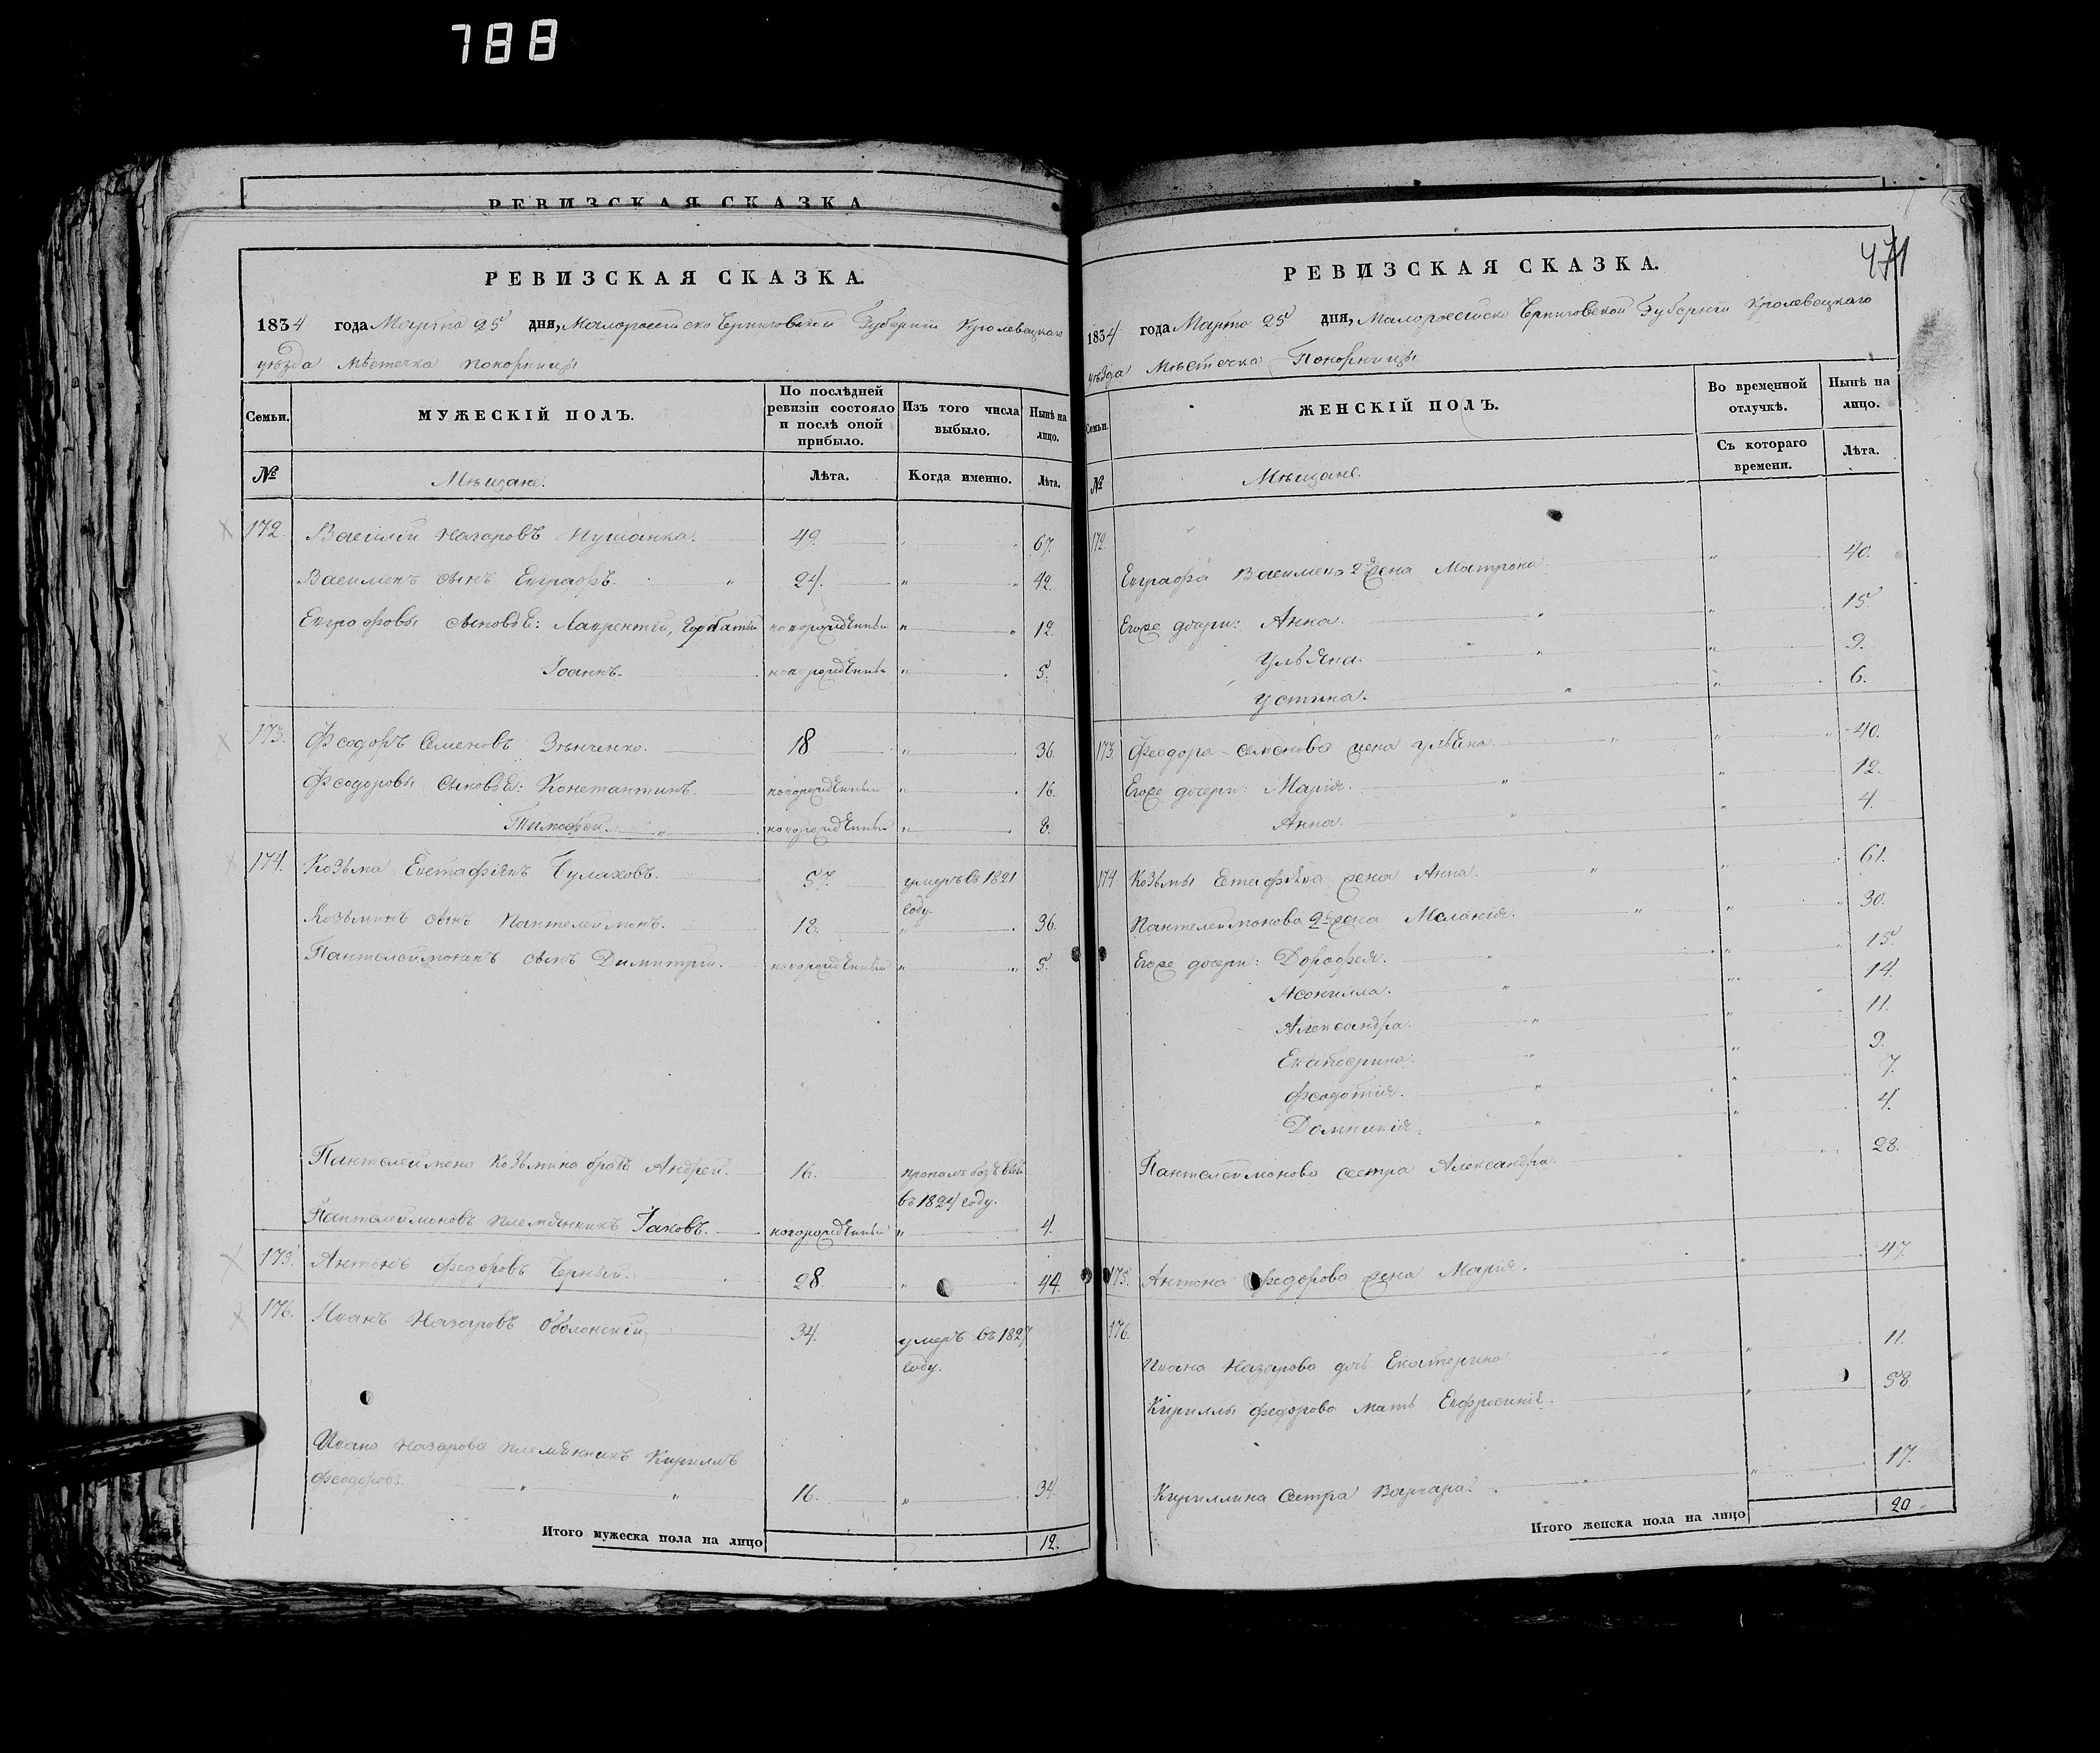 788
РЕВИЗСКАЯ СКАЗКА
РЕВИЗСКАЯ СКАЗКА.
1834 года Марта 25 дня, Малороссійско Черниговской Губерніи Кролевецкаго
уѣзда мѣстечка Понорницы
Семьи. МУЖЕСКІЙ ПОЛЪ. По послѣдней ревизіи состояло и послѣ оной прибыло. Изъ того числа выбыло. Нынѣ на лицо.
№ Мѣщане. Лѣта. Когда именно. Лѣта.
172. Василій Назаровъ 49. 67.
Василіевъ сынъ Евграфъ. 24. 42.
Евграфовы сыновья: Лаврентій, новорожденный 12.
Іоаннъ. новорожденный 5.
173. Феодоръ Семеновъ Зѣнченко. 18 36.
Феодоровы сыновья: Константинъ. новорожденный 16.
Тимофей. новорожденный 8.
174. Козьма Евстафіевъ Булаховъ. 57. умеръ въ 1821
году.
Козьминъ сынъ Пантелеймонъ. 18. 36.
Пантелеймоновъ сынъ Димитрій. новорожденный 5.
Пантелеймона Козьмина братъ Андрей. 16. пропалъ безъ вѣсти
въ 1824 году.
Пантелеймоновъ племянникъ Іаковъ. новорожденный 4.
175. Антонъ Федоровъ Черный. 28. 44.
176. Иванъ Назаровъ Оболонскій, 34. умеръ въ 1827
году.
Ивана Назарова племянникъ Кириллъ
Феодоровъ 16. 34.
Итого мужеска пола на лицо 12.
471
РЕВИЗСКАЯ СКАЗКА.
1834 года Марта 25 дня, Малороссійско Черниговской Губерніи Кролевецкаго
уѣзда Мѣстечка Понорницы
Семьи. ЖЕНСКІЙ ПОЛЪ. Во временной отлучкѣ. Нынѣ на лицо.
Съ котораго времени. Лѣта.
№ Мѣщане.
172.
Евграфа Василіева 2я жена Матрона 40.
Егоже дочери: Анна. 15.
Ульяна. 9.
Устина. 6.
173. Феодора Семенова жена Ульяна 40.
Егоже дочери: Марія. 12.
Анна. 4.
174 Козьмы Евстафіева жена Анна. 61.
Пантелеймонова 2я жена Меланія. 30.
Егоже дочери: Дорофея. 15.
Неонилла. 14.
Александра. 11.
Екатерина. 9.
Феодотія. 7.
Домникія. 4.
Пантелеймонова сестра Александра 28.
175. Антона Федорова жена Марія. 47.
176.
Ивана Назарова дочь Екатерина 11.
Кириллы Федорова мать Евфросинія. 58.
Кириллина сестра Варвара. 17.
Итого женска пола на лицо 20